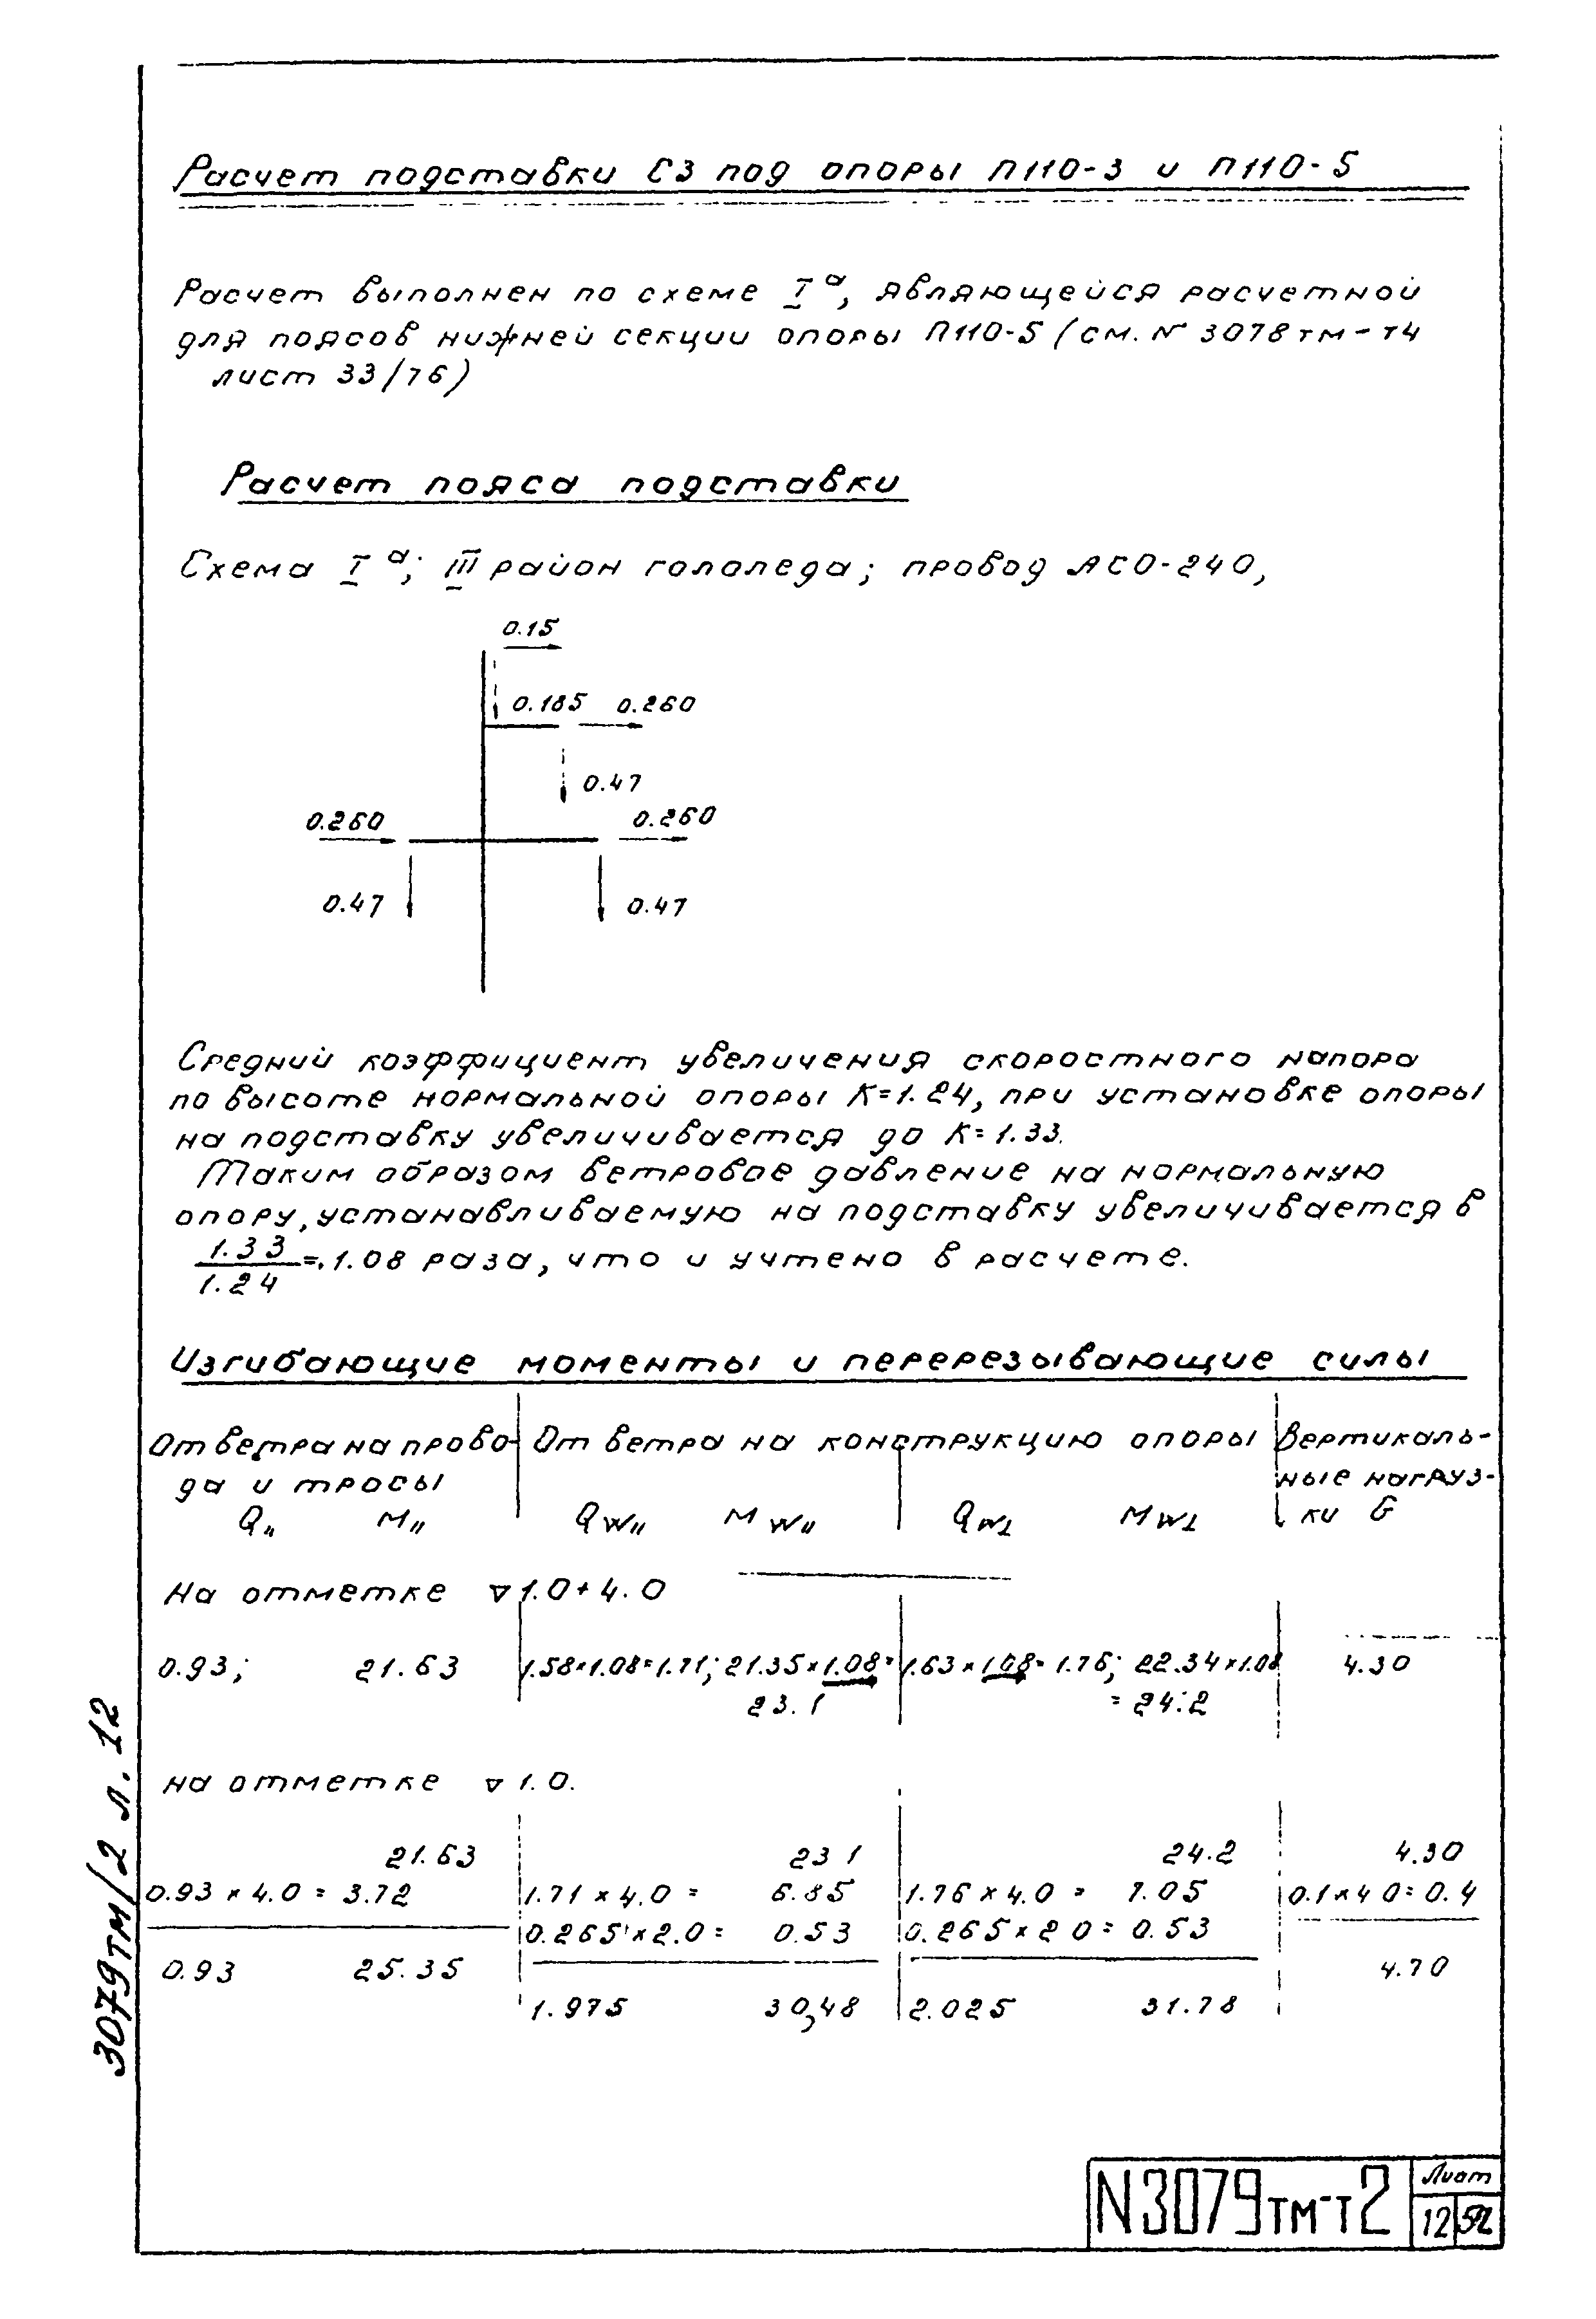 Расчет подставки С3 под опоры П110-3 и П110-5
Расчет выполнен по схеме I а, являющейся расчетной
для поясов нижней секции опоры П110-5 (см. N 3078тм-т4
лист 33/76)
Расчет пояса подставки
Схема I а; III район гололеда; провод АСО-240,
0.15
0.185 0.260
0.47
0.260 0.260
0.47 0.47
Средний коэффициент увеличения скоростного напора
по высоте нормальной опоры К=1.24, при установке опоры
на подставку увеличивается до К=1.33.
Таким образом ветровое давление на нормальную
опору, устанавливаемую на подставку увеличивается в
1.33/1.24 = 1.08 раза, что и учтено в расчете.
Изгибающие моменты и перерезывающие силы
От ветра на прово- От ветра на конструкцию опоры Вертикаль-
да и тросы ные нагруз-
Q" M" QW" MW" QW⊥ MW⊥ ки G
На отметке ▽1.0+4.0
0.93; 21.63 1.58×1.08=1.71; 21.35×1.08= 1.63×1.08=1.76; 22.34×1.08 4.30
23.1 =24.2
на отметке ▽1.0.
21.63 23 1 24.2 4.30
0.93×4.0=3.72 1.71×4.0= 6.85 1.76×4.0= 7.05 0.1×4 0=0.4
0.265×2.0= 0.53 0.265×2 0= 0.53
0.93 25.35 4.70
1.975 30,48 2.025 31.78
3079тм/2 л. 12
N3079тм-т2
Лист
12 52